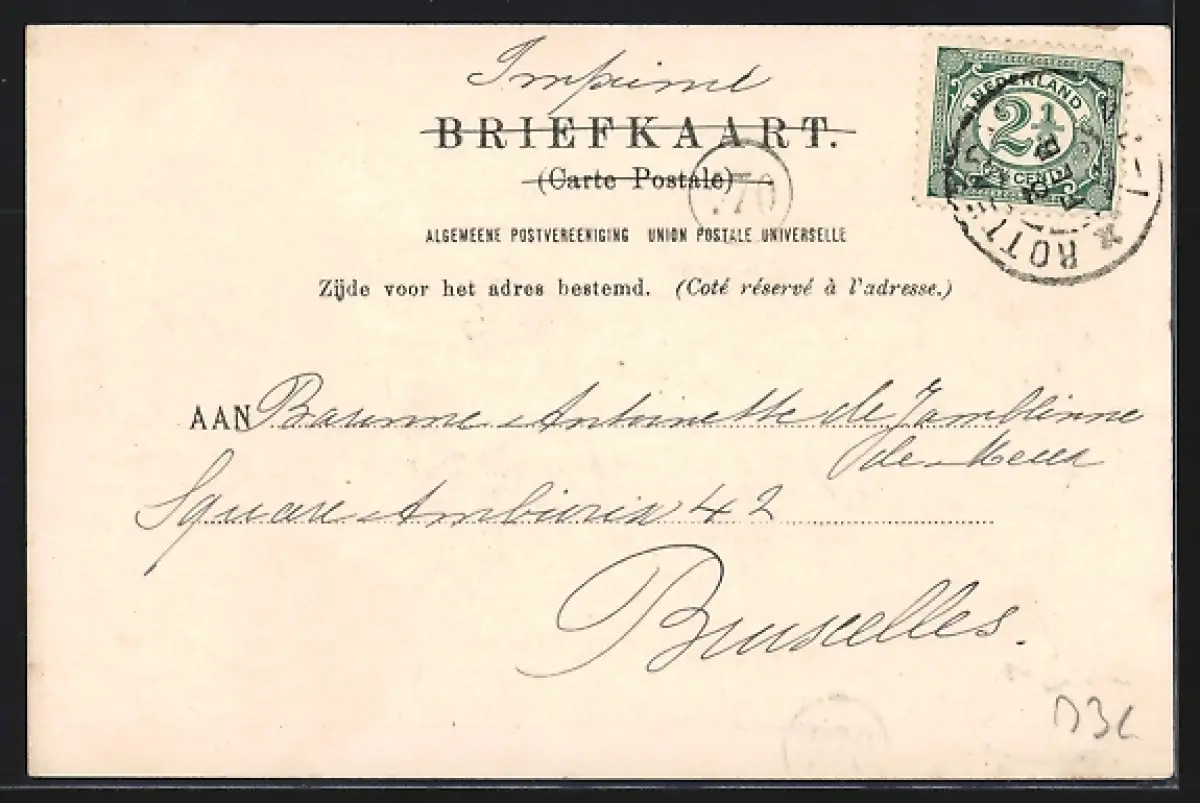 Imprimé
BRIEFKAART.
(Carte Postale)
ALGEMEENE POSTVEREENIGING UNION POSTALE UNIVERSELLE
Zijde voor het adres bestemd. (Coté réservé à l'adresse.)
NEDERLAND
2½
CENT
ROTT
AAN Baronne Antoinette de Jamblinne
de Meux
Square Ambiorix 42
Bruxelles.